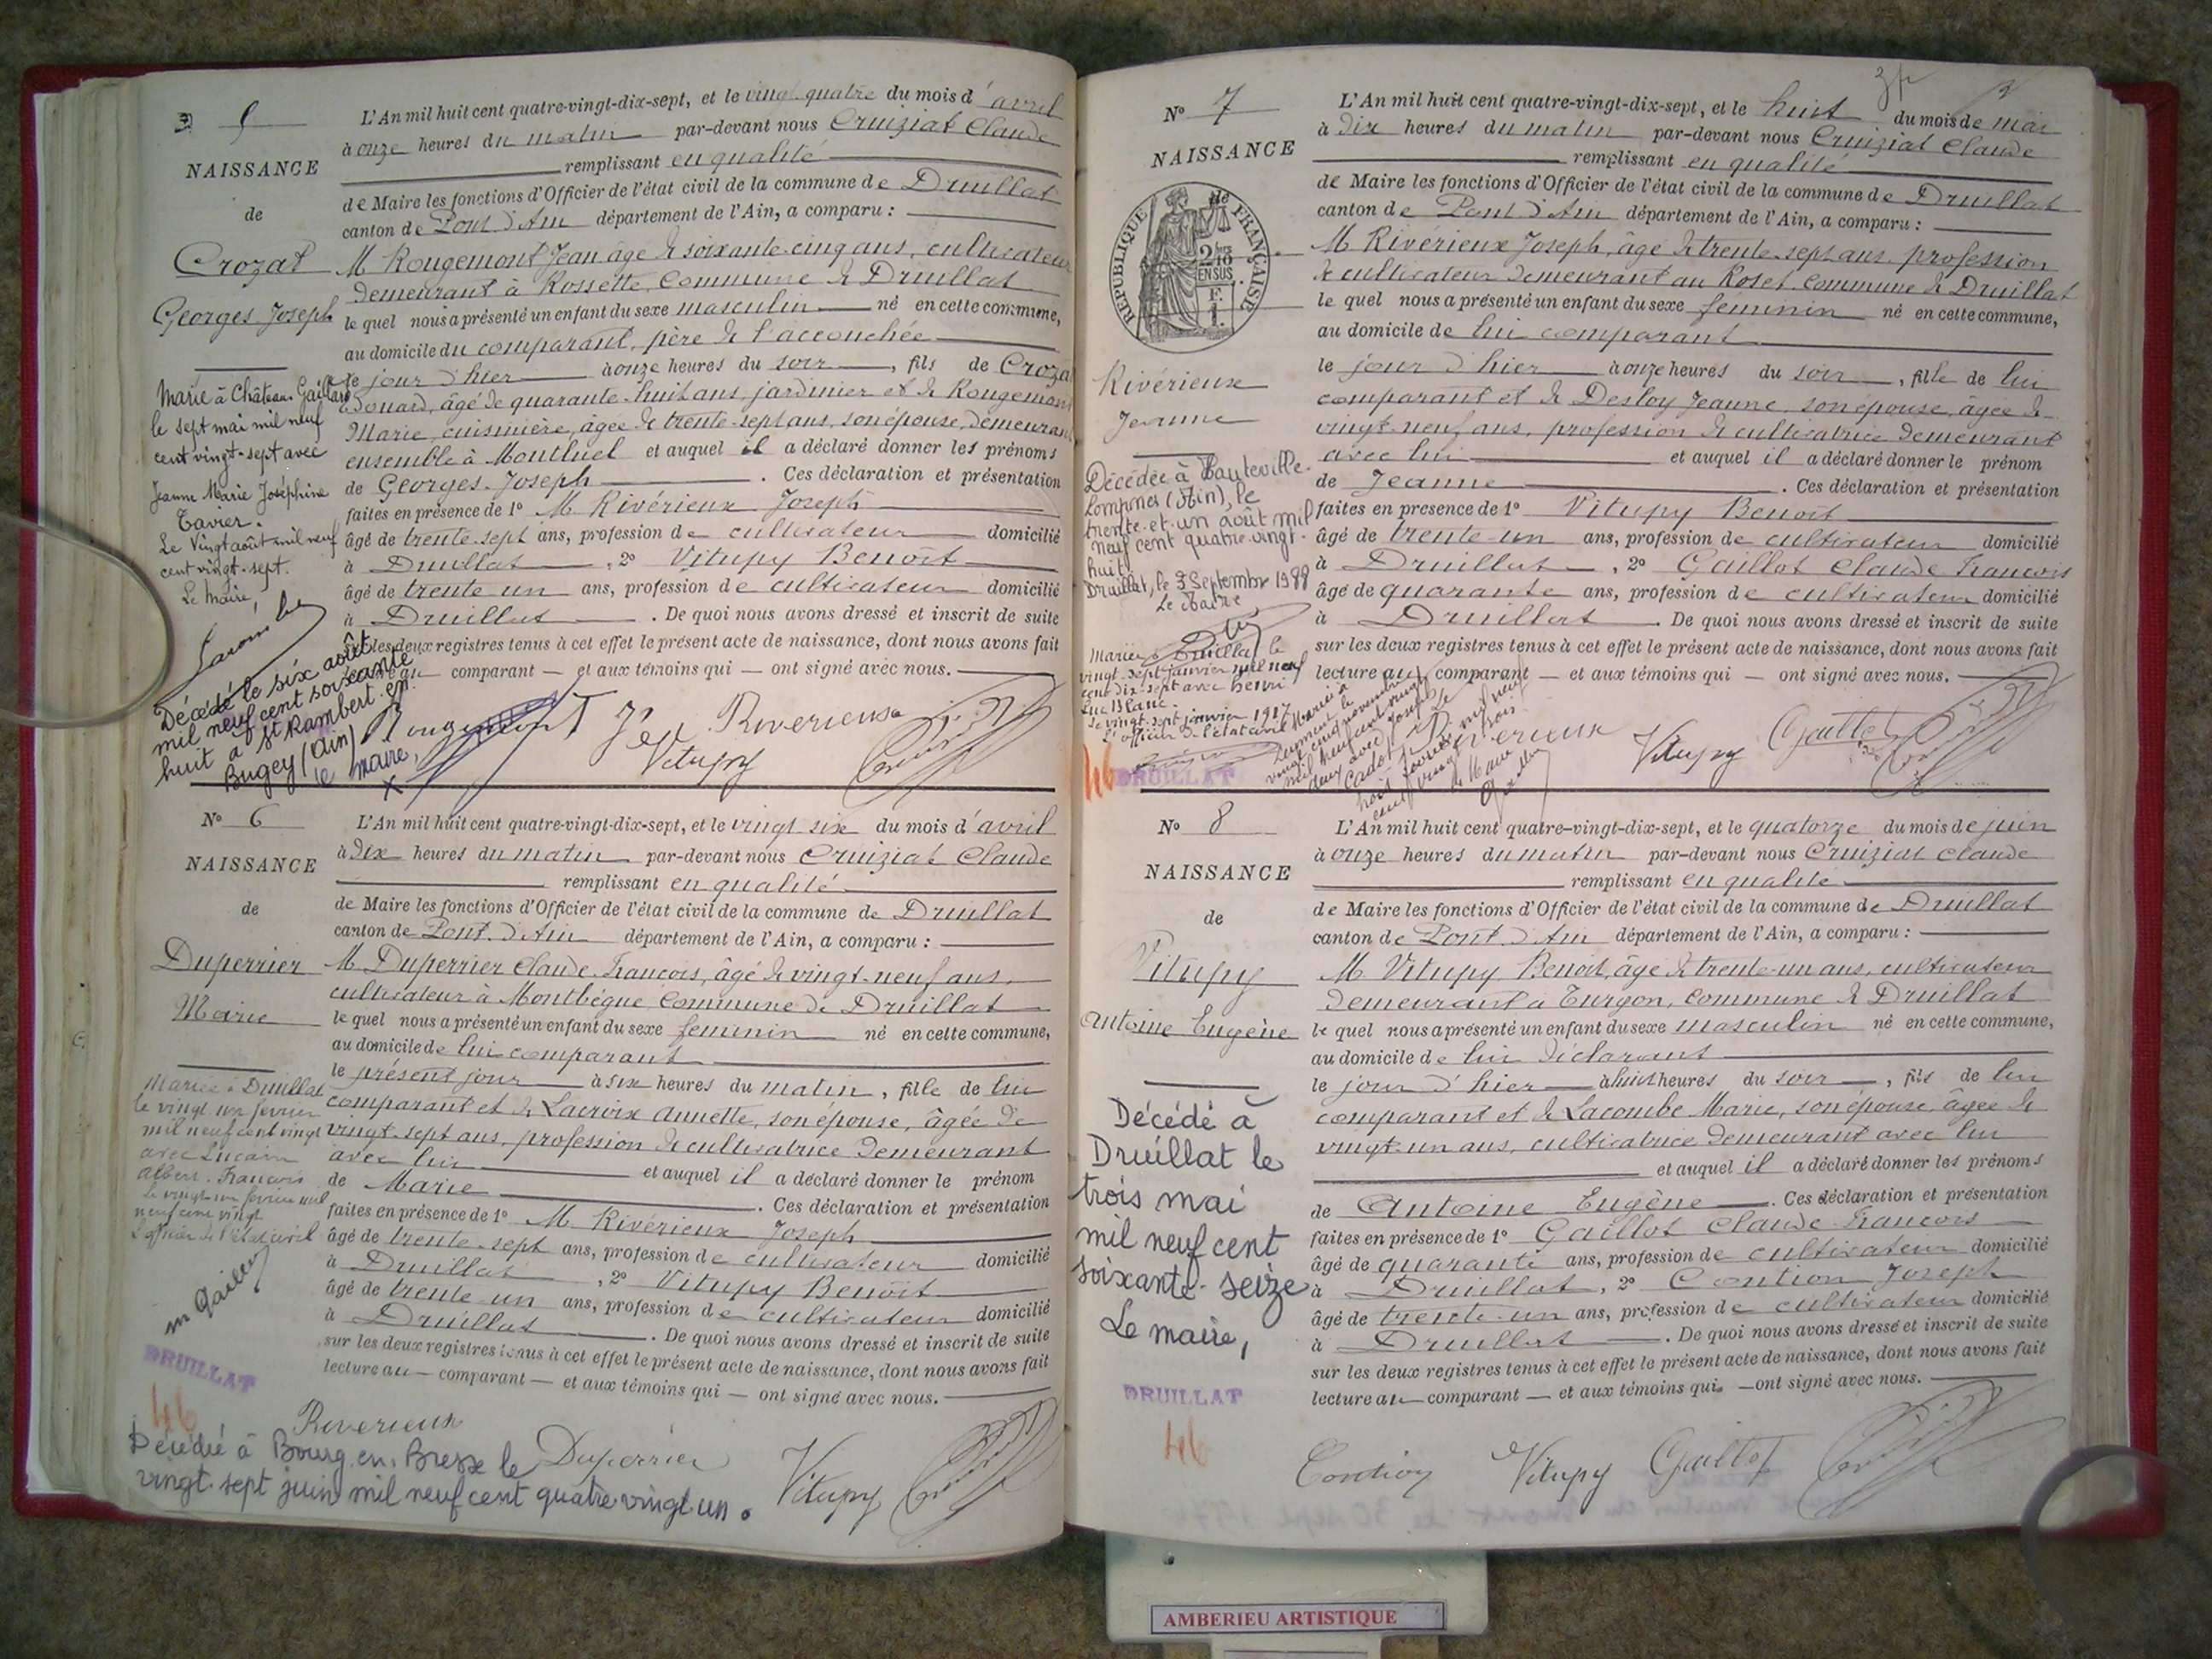 5
NAISSANCE
de
Crozat
Georges Joseph
L'An mil huit cent quatre-vingt-dix-sept, et le vingt quatre du mois d'avril
à onze heures du matin par-devant nous Cruiziat Claude
remplissant en qualité
de Maire les fonctions d'Officier de l'état civil de la commune de Druillat
canton de Pont d'Ain département de l'Ain, a comparu :
M Rougemont Jean âgé de soixante-cinq ans, cultivateur
demeurant à Rossette, Commune de Druillat
le quel nous a présenté un enfant du sexe masculin né en cette commune,
au domicile du comparant, père de l'accouchée
le jour d'hier à onze heures du soir, fils de Crozat
Edouard, âgé de quarante-huit ans, jardinier et de Rougemont
Marie, cuisinière, âgée de trente-sept ans, son épouse, demeurant
ensemble à Montluel et auquel il a déclaré donner les prénoms
de Georges-Joseph. Ces déclaration et présentation
faites en présence de 1° M Rivérieux Joseph
âgé de trente-sept ans, profession de cultivateur domicilié
à Druillat, 2° Vitupy Benoît
âgé de trente un ans, profession de cultivateur domicilié
à Druillat. De quoi nous avons dressé et inscrit de suite
sur les deux registres tenus à cet effet le présent acte de naissance, dont nous avons fait
lecture au comparant — et aux témoins qui — ont signé avec nous.
Marié à Château-Gaillard
le sept mai mil neuf
cent vingt-sept avec
Jeanne Marie Joséphine
Tavier.
Le Vingt août mil neuf
cent vingt-sept.
Le Maire,
Décédé le six août
mil neuf cent soixante
huit à St Rambert en
Bugey (Ain)
le maire,
Rougemont Jean Riverieux
Vitupy
N° 6
NAISSANCE
de
Duperrier
Marie
L'An mil huit cent quatre-vingt-dix-sept, et le vingt six du mois d'avril
à dix heures du matin par-devant nous Cruiziat Claude
remplissant en qualité
de Maire les fonctions d'Officier de l'état civil de la commune de Druillat
canton de Pont d'Ain département de l'Ain, a comparu :
M Duperrier Claude-François, âgé de vingt-neuf ans,
cultivateur à Montbègue Commune de Druillat
le quel nous a présenté un enfant du sexe feminin né en cette commune,
au domicile de lui comparant
le présent jour à six heures du matin, fille de lui
comparant et de Lacroix Annette, son épouse, âgée de
vingt-sept ans, profession de cultivatrice demeurant
avec lui et auquel il a déclaré donner le prénom
de Marie. Ces déclaration et présentation
faites en présence de 1° M Rivérieux Joseph
âgé de trente-sept ans, profession de cultivateur domicilié
à Druillat, 2° Vitupy Benoît
âgé de trente un ans, profession de cultivateur domicilié
à Druillat. De quoi nous avons dressé et inscrit de suite
sur les deux registres tenus à cet effet le présent acte de naissance, dont nous avons fait
lecture au — comparant — et aux témoins qui — ont signé avec nous.
Mariée à Druillat
le vingt un fevrier
mil neuf cent vingt
avec
Albert-François
le vingt un fevrier mil
neuf cent vingt
L'officier de l'état civil
DRUILLAT
46
Riverieux
Duperrier
Vitupy
Décédée à Bourg-en-Bresse le
vingt-sept juin mil neuf cent quatre-vingt-un.
N° 7
NAISSANCE
de
RÉPUBLIQUE FRANÇAISE
2/10
EN SUS
F.
1.
Rivérieux
Jeanne
L'An mil huit cent quatre-vingt-dix-sept, et le huit du mois de mai
à dix heures du matin par-devant nous Cruiziat Claude
remplissant en qualité
de Maire les fonctions d'Officier de l'état civil de la commune de Druillat
canton de Pont d'Ain département de l'Ain, a comparu :
M Rivérieux Joseph, âgé de trente-sept ans, profession
de cultivateur demeurant au Roset, commune de Druillat
le quel nous a présenté un enfant du sexe feminin né en cette commune,
au domicile de lui comparant
le jour d'hier à onze heures du soir, fille de lui
comparant et de Desloy Jeanne, son épouse, âgée de
vingt-neuf ans, profession de cultivatrice demeurant
avec lui et auquel il a déclaré donner le prénom
de Jeanne. Ces déclaration et présentation
faites en présence de 1° Vitupy Benoît
âgé de trente-un ans, profession de cultivateur domicilié
à Druillat, 2° Gaillot Claude François
âgé de quarante ans, profession de cultivateur domicilié
à Druillat. De quoi nous avons dressé et inscrit de suite
sur les deux registres tenus à cet effet le présent acte de naissance, dont nous avons fait
lecture au comparant — et aux témoins qui — ont signé avec nous.
Décédée à Hauteville-
Lompnes (Ain), le
trente-et-un août mil
neuf cent quatre-vingt-
huit
Druillat, le 3 Septembre 1988
Le Maire
Mariée à Druillat le
vingt-sept janvier mil neuf
cent dix-sept avec Henri
Luc Blanc
le vingt-sept janvier 1917
L'officier de l'état civil
DRUILLAT
46
Riverieux Vitupy Gaillot
N° 8
NAISSANCE
de
Vitupy
Antoine Eugène
L'An mil huit cent quatre-vingt-dix-sept, et le quatorze du mois de juin
à onze heures du matin par-devant nous Cruiziat Claude
remplissant en qualité
de Maire les fonctions d'Officier de l'état civil de la commune de Druillat
canton de Pont d'Ain département de l'Ain, a comparu :
M Vitupy Benoit, âgé de trente-un ans, cultivateur
demeurant à Turgon, commune de Druillat
le quel nous a présenté un enfant du sexe masculin né en cette commune,
au domicile de lui déclarant
le jour d'hier à huit heures du soir, fils de lui
comparant et de Lacombe Marie, son épouse, âgée de
vingt-un ans, cultivatrice demeurant avec lui
et auquel il a déclaré donner les prénoms
de Antoine Eugène. Ces déclaration et présentation
faites en présence de 1° Gaillot Claude François
âgé de quarante ans, profession de cultivateur domicilié
à Druillat, 2° Contion Joseph
âgé de trente-un ans, profession de cultivateur domicilié
à Druillat. De quoi nous avons dressé et inscrit de suite
sur les deux registres tenus à cet effet le présent acte de naissance, dont nous avons fait
lecture au — comparant — et aux témoins qui — ont signé avec nous.
Décédé à
Druillat le
trois mai
mil neuf cent
soixante-seize
Le maire,
DRUILLAT
46
Contion Vitupy Gaillot
AMBERIEU ARTISTIQUE